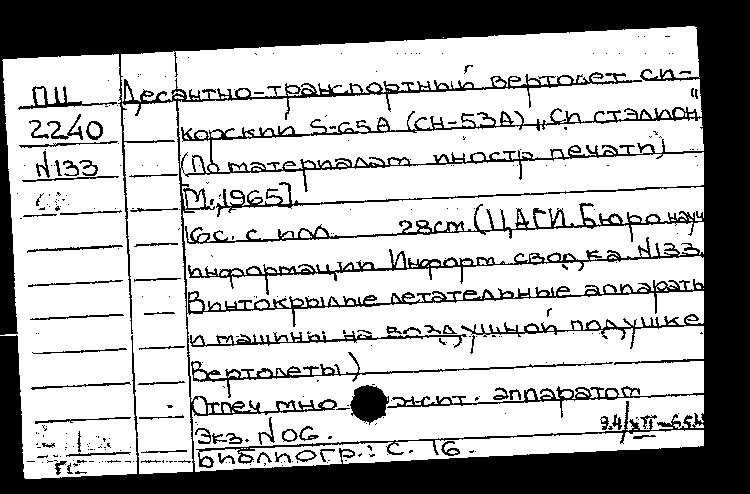 ПЦ Десантно-транспортный вертолет Си-
2240 корский S-65A (CH-53A) „Си стэлион"
N133 (По материалам иностр. печати)
[М., 1965].
16с. с илл. 28см. (ЦАГИ. Бюро научн
информации Информ. сводка. N133.
Винтокрылые летательные аппараты
и машины на воздушной подушке
Вертолеты)
Отпеч. мно жит. аппаратом
Экз. N06.
Библиогр.: с. 16.